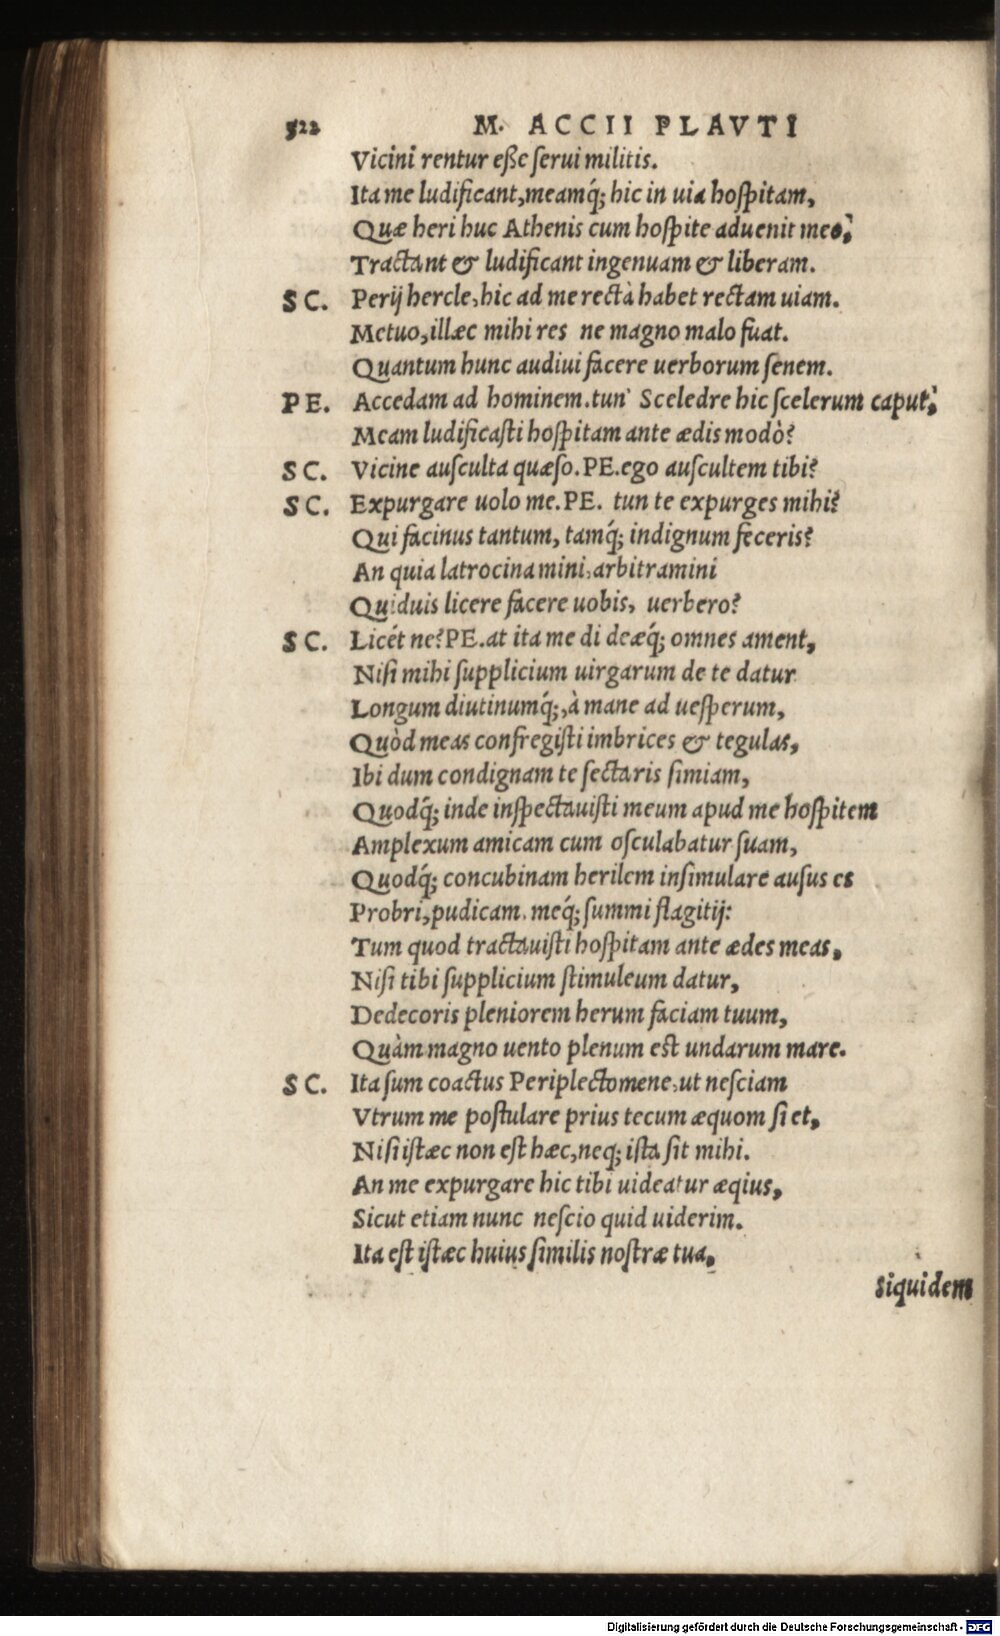 522 M. ACCII PLAVTI
Vicini rentur eſſe ſerui militis.
Ita me ludificant, meamq́; hic in uia hoſpitam,
Quæ heri huc Athenis cum hoſpite aduenit meo,
Tractant & ludificant ingenuam & liberam.
SC. Perij hercle, hic ad me rectà habet rectam uiam.
Metuo, illæc mihi res ne magno malo fuat.
Quantum hunc audiui facere uerborum ſenem.
PE. Accedam ad hominem. tun' Sceledre hic ſcelerum caput,
Meam ludificaſti hoſpitam ante ædis modò?
SC. Vicine auſculta quæſo. PE. ego auſcultem tibi?
SC. Expurgare uolo me. PE. tun te expurges mihi?
Qui facinus tantum, tamq́; indignum feceris?
An quia latrocinamini, arbitramini
Quiduis licere facere uobis, uerbero?
SC. Licét ne? PE. at ita me di deæq́; omnes ament,
Niſi mihi ſupplicium uirgarum de te datur
Longum diutinumq́;, à mane ad ueſperum,
Quòd meas confregiſti imbrices & tegulas,
Ibi dum condignam te ſectaris ſimiam,
Quodq́; inde inſpectauiſti meum apud me hoſpitem
Amplexum amicam cum oſculabatur ſuam,
Quodq́; concubinam herilem inſimulare auſus es
Probri, pudicam, meq́; ſummi flagitij:
Tum quod tractauiſti hoſpitam ante ædes meas,
Niſi tibi ſupplicium ſtimuleum datur,
Dedecoris pleniorem herum faciam tuum,
Quàm magno uento plenum eſt undarum mare.
SC. Ita ſum coactus Periplectomene, ut neſciam
Vtrum me poſtulare prius tecum æquom ſi et,
Niſi iſtæc non eſt hæc, neq; iſta ſit mihi.
An me expurgare hic tibi uideatur æqius,
Sicut etiam nunc neſcio quid uiderim.
Ita eſt iſtæc huius ſimilis noſtræ tua,
Siquidem
Digitalisierung gefördert durch die Deutsche Forschungsgemeinschaft - DFG